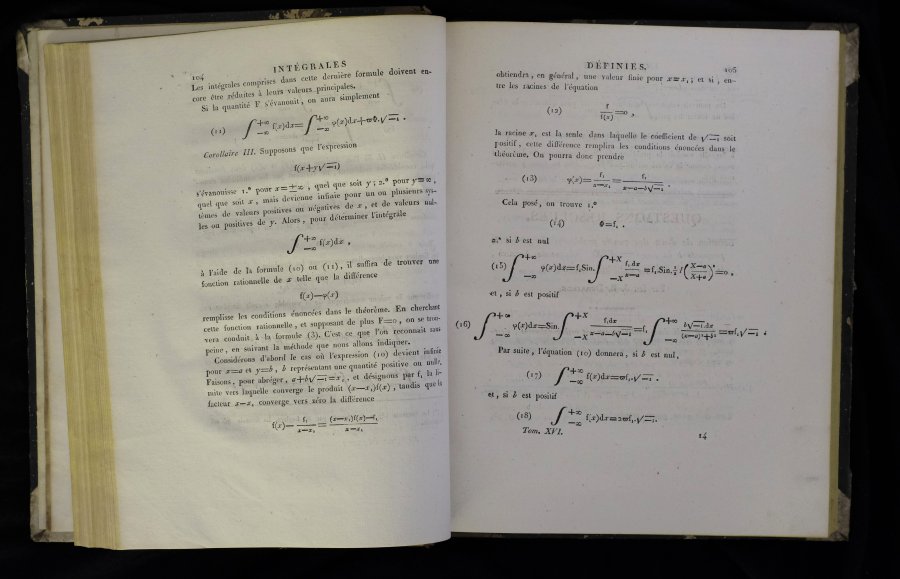 104
INTÉGRALES
Les intégrales comprises dans cette dernière formule doivent en-
core être réduites à leurs valeurs principales.
Si la quantité F s'évanouit, on aura simplement
(11) ∫₋∞⁺∞ f(x)dx=∫₋∞⁺∞ φ(x)dx+ϖΦ.√−1 .
Corollaire III. Supposons que l'expression
f(x+y√−1)
s'évanouisse 1.° pour x=±∞, quel que soit y ; 2.° pour y=∞,
quel que soit x, mais devienne infinie pour un ou plusieurs sys-
tèmes de valeurs positives ou négatives de x, et de valeurs nul-
les ou positives de y. Alors, pour déterminer l'intégrale
∫₋∞⁺∞ f(x)dx ,
à l'aide de la formule (10) ou (11), il suffira de trouver une
fonction rationnelle de x telle que la différence
f(x)—φ(x)
remplisse les conditions énoncées dans le théorème. En cherchant
cette fonction rationnelle, et supposant de plus F=0, on se trou-
vera conduit à la formule (3). C'est ce que l'on reconnaît sans
peine, en suivant la méthode que nous allons indiquer.
Considérons d'abord le cas où l'expression (10) devient infinie
pour x=a et y=b, b représentant une quantité positive ou nulle.
Faisons, pour abréger, a+b√−1=x₁, et désignons par f₁ la li-
mite vers laquelle converge le produit (x—x₁)f(x), tandis que le
facteur x—x₁ converge vers zéro la différence
f(x)— f₁/(x—x₁) = ((x—x₁)f(x)—f₁)/(x—x₁)
DÉFINIES.
105
obtiendra, en général, une valeur finie pour x=x₁ ; et si, en-
tre les racines de l'équation
(12) 1/f(x)=0 ,
la racine x₁ est la seule dans laquelle le coefficient de √−1 soit
positif, cette différence remplira les conditions énoncées dans le
théorème. On pourra donc prendre
(13) φ(x)= f₁/(x—x₁) = f₁/(x—a—b√−1) .
Cela posé, on trouve 1.°
(14) Φ=f₁ .
2.° si b est nul
(15) ∫₋∞⁺∞ φ(x)dx=f₁Sin.∫₋X⁺X f₁dx/(x—a) =f₁Sin.½ l((X—a)/(X+a))²=0 ,
et, si b est positif
(16) ∫₋∞⁺∞ φ(x)dx=Sin.∫₋X⁺X f₁dx/(x—a—b√−1) =f₁∫₋∞⁺∞ b√−1.dx/((x—a)²+b²) =ϖf₁√−1 .
Par suite, l'équation (10) donnera, si b est nul,
(17) ∫₋∞⁺∞ f(x)dx=ϖf₁.√−1 .
et, si b est positif
(18) ∫₋∞⁺∞ f(x)dx=2ϖf₁.√−1.
Tom. XVI.
14